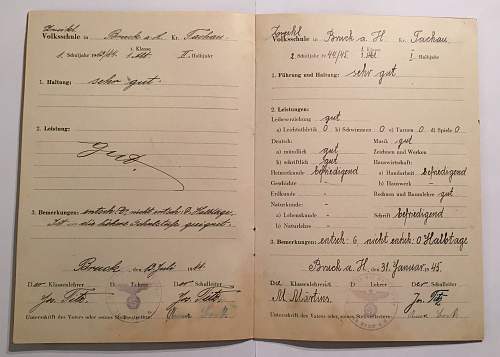 Volksschule in Bruck a.H. Kr. Tachau.
1. Schuljahr 1943/44 1. Klasse II. Halbjahr
1. Haltung: sehr gut.
2. Leistung:
Gut
3. Bemerkungen: entsch. 0, nicht entsch. 0 Halbtage.
Ist – die höhere Schulstufe geeignet.
Bruck, den 13. Juli 44.
Der Klassenlehrer D. Lehrer Der Schulleiter
Jos. Titz Jos. Titz
Unterschrift des Vaters oder seines Stellvertreters:
Volksschule in Bruck a. H. Kr. Tachau
2. Schuljahr 1944/45 1. Klasse I. Halbjahr
1. Führung und Haltung: sehr gut
2. Leistungen:
Leibeserziehung gut
a) Leichtathletik 0 b) Schwimmen 0 c) Turnen 0 d) Spiele 0
Deutsch: Musik gut
a) mündlich gut Zeichnen und Werken
b) schriftlich gut Hauswirtschaft:
Heimatkunde befriedigend a) Handarbeit befriedigend
Geschichte – b) Hauswerk –
Erdkunde – Rechnen und Raumlehre gut
Naturkunde:
a) Lebenskunde – Schrift befriedigend
b) Naturlehre –
3. Bemerkungen: entsch. 6 nicht entsch. 0 Halbtage
Bruck a. H., den 31. Januar 45.
Klassenleiter D. Lehrer Der Schulleiter
M. Märtins Jos. Titz
Unterschrift des Vaters oder seines Stellvertreters: